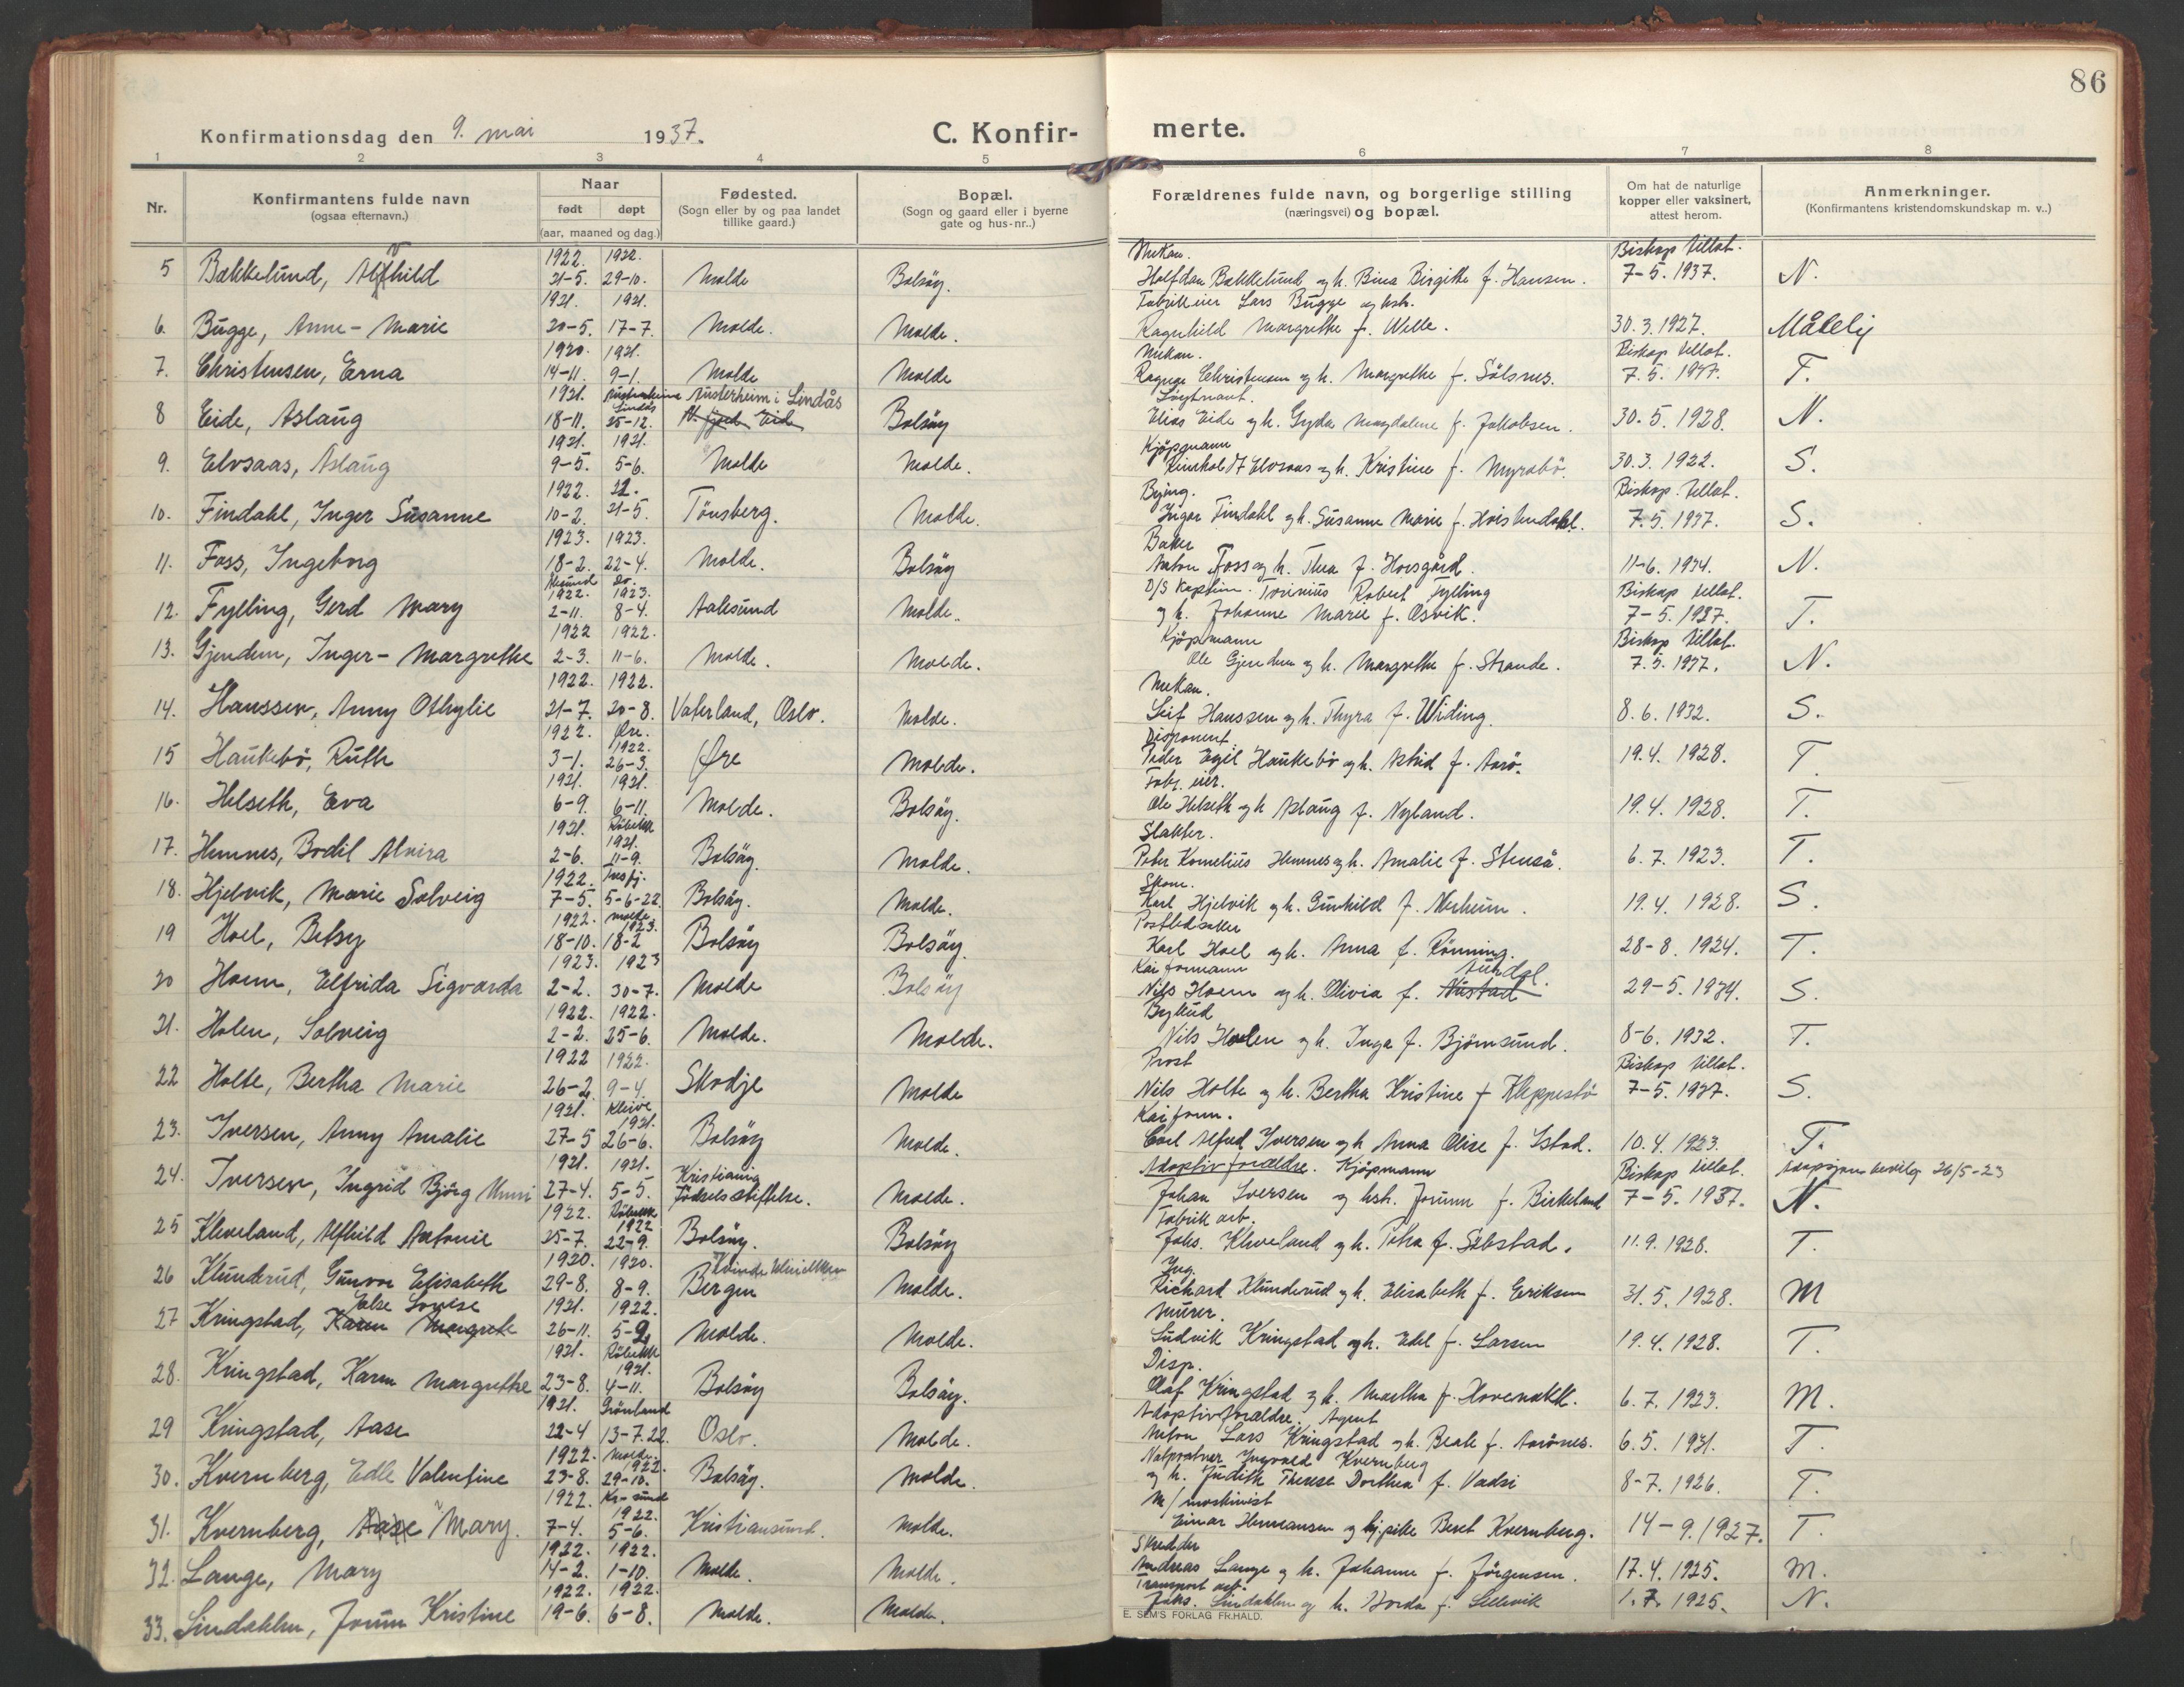 86
Konfirmationsdag den 9. mai 1937. C. Konfir- merte.
1 2 3 4 5 6 7 8
Nr. Konfirmantens fulde navn (ogsaa efternavn.) Naar født døpt (aar, maaned og dag.) Fødested. (Sogn eller by og paa landet tillike gaard.) Bopæl. (Sogn og gaard eller i byerne gate og hus-nr..) Forældrenes fulde navn, og borgerlige stilling (næringsvei) og bopæl. Om hat de naturlige kopper eller vaksinert, attest herom. Anmerkninger. (Konfirmantens kristendomskundskap m. v..)
1922. 1922. Mekan. Biskop tillat.
5 Bakkelund, Alfhild 21-5. 29-10. Molde Bolsöy. Halfdan Bakkelund og h. Bina Birgitte f. Hansen. 7-5. 1937. N.
1921. 1921. Fabrikeier Lars Bugge og hstr.
6. Bugge, Anne-Marie 20-5. 17-7. Molde. Molde. Ragnhild Margrethe f. Welle. 30.3.1927. Måtelig
1920. 1921. Mekan. Biskop tillat.
7. Christensen, Erna 14-11. 9-1. Molde Molde Ragnar Christensen og h. Margrethe f. Sölsnes. 7.5. 1937. T.
1921. Austerheim i Lindås Löytnant.
8 Eide, Aslaug 18-11. 25-12. Eide Bolsöy Elias Eide og h. Gyda Magdalene f. Jakobsen. 30.5. 1928. N.
1921. 1921. Kjöpmann
9. Elvsaas, Aslaug 9-5. 5-6. Molde Molde. Elvsaas og h. Kristine f. Myrabö. 30.3. 1922. S.
1922. 22. Bying. Biskop. tillat.
10. Findahl, Inger Susanne 10-2. 21-5. Tönsberg. Molde. Ingar Findahl og h. Susanne Marie f. Hvistendahl. 7.5. 1937. S.
1923. 1923. Baker
11. Foss, Ingeborg 18-2. 22-4. Molde. Bolsöy Anton Foss og h. Thea f. Horsgård. 11-6. 1934. N.
Ålesund do. 1922. 1923. D/S Kaptein. Robert Fylling Biskop tillat.
12. Fylling, Gerd Mary 2-11. 8-4. Aalesund Molde. og h. Johanne Marie f. Osvik. 7-5. 1937. T.
1922 1922. Kjöpmann Biskop tillat.
13. Gjendem, Inger-Margrethe 2-3. 11-6. Molde. Molde. Ole Gjendem og h. Margrethe f. Strande. 7.5. 1937. N.
1922. 1922. Mekan.
14. Hanssen, Anny Othylie 21-7. 20-8. Vaterland, Oslo. Molde. Leif Hanssen og h. Thyra f. Widing. 8.6. 1932. S.
1922. Øre. 1922. Disponent
15 Haukebö, Ruth 3-1. 26-3. Øre Molde. Peder Egil Haukebö og h. Astrid f. Aarö. 19.4. 1928. T.
1921. 1921. Fabr. eier.
16. Helseth, Eva 6-9. 6-11. Molde. Bolsöy. Ole Helseth og h. Aslaug f. Nyland. 19.4. 1928. T.
1921. Röbekk 1921. Slakter.
17. Hemnes, Bodil Alvira 2-6. 11-9. Bolsöy. Molde. Peter Kornelius Hemnes og h. Amalie f. Stenså. 6.7. 1923. T.
1922. Skom.
18. Hjelvik, Marie Solveig 7-5. 5-6-22. Bolsöy. Molde. Karl Hjelvik og h. Gunhild f. Nerheim. 19.4. 1928. S.
1922. Molde 1923.
19 Hoel, Betsy 18-10. 18-2 Bolsöy Bolsöy. Karl Hoel og h. Anna f. Rönning. 28-8. 1924. T.
1923. 1923 Kaiformann
20 Hoem, Elfrida Sigvarda 2-2. 30-7. Molde Bolsöy Nils Hoem og h. Olivia f. Nustad 29-5. 1934. S.
1922. 1922. Bybud
21. Holen, Solveig 2-2. 25-6. Molde. Molde. Nils Holen og h. Inga f. Björnsund. 8-6. 1932. T.
1922 1922. Prost Biskop tillat.
22 Holte, Bertha Marie 26-2. 9-4. Skodje Molde Nils Holte og h. Bertha Kristine f. Kleppestö 7-5. 1937. S.
1921. Kleive 1921. Kaiform.
23. Iversen, Anny Amalie 27-5 26-6. Bolsöy Molde. Carl Alfred Iversen og h. Anna Elise f. Istad. 10.4. 1923. T.
1921. 1921. Kristiania Adoptivforældre. Kjöpmann Biskop tillat. Adopsjons bevilg 26/5-23
24. Iversen, Ingrid Björg Unni 27-4. 5-5. Födselsstiftelse. Molde. Johan Iversen og hstr. Jorunn f. Birkeland 7-5. 1937. N.
1922. Röbekk 1922 Fabrik arb.
25 Kleveland, Alfhild Antonie 25-7. 22-9. Bolsöy. Bolsöy Johs. Kleveland og h. Petra f. Sölstad. 11.9. 1928. T.
1920. 1920. Kvinde klinikken Ing.
26 Klunderud, Gunvor Elisabeth 29-8. 8-9. Bergen Molde. Richard Klunderud og h. Elisabeth f. Eriksen 31.5. 1928. M
Else Lovise 1921. 1922. Murer.
27 Kringstad, Karen Margrete 26-11. 5-2 Molde. Molde. Ludvik Kringstad og h. Edel f. Larsen 19.4. 1928. T.
1921. Röbekk 1921. Disp.
28. Kringstad, Karen Margrethe 23-8. 4-11. Bolsöy Bolsöy. Olaf Kringstad og h. Martha f. Hovenakk. 6.7. 1923. M.
1921. Grönland Adoptivforældre. Agent
29 Kringstad, Aase 22-4 13-7.22. Oslo. Molde. Anton Lars Kringstad og h. Beate f. Aarönes. 6.5. 1931. T.
1922. Molde. 1922. Ingvald Kvernberg
30. Kvernberg, Edle Valentine 23-8. 29-10. Bolsöy. Molde. og h. Judith Therese Dorthea f. Vadsi 8-7. 1926. T.
1922. Kr-sund 1922. M/maskinist
31. Kvernberg, Aase Mary. 7-4. 5-6. Kristiansund. Molde. Einar Hermansen og pike Beret Kvernberg. 14-9.1927. T.
1922. 1922. Skredder
32. Lange, Mary 14-2. 1-10. Molde. Molde. Andreas Lange og h. Johanne f. Jörgensen. 17.4. 1925. M.
1922. 1922. Transport arb.
33. Lindahlen, Jorun Kristine 19-6. 6-8. Molde. Molde. Johs. Lindahlen og h. Horda f. Sellevik 1.7. 1925. N.
E. SEM'S FORLAG FR.HALD.